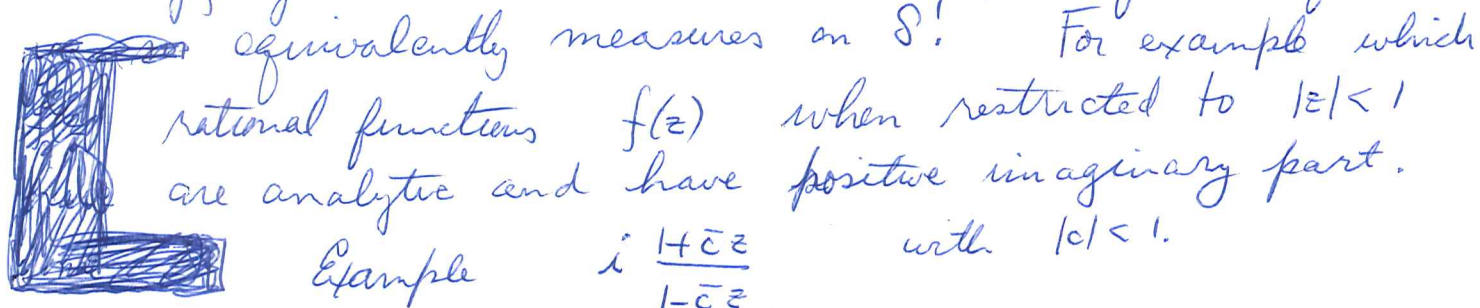 equivalently measures on S! For example which
rational functions f(z) when restricted to |z|<1
are analytic and have positive imaginary part.
Example i \frac{1+\bar{c}z}{1-\bar{c}z} with |c|<1.